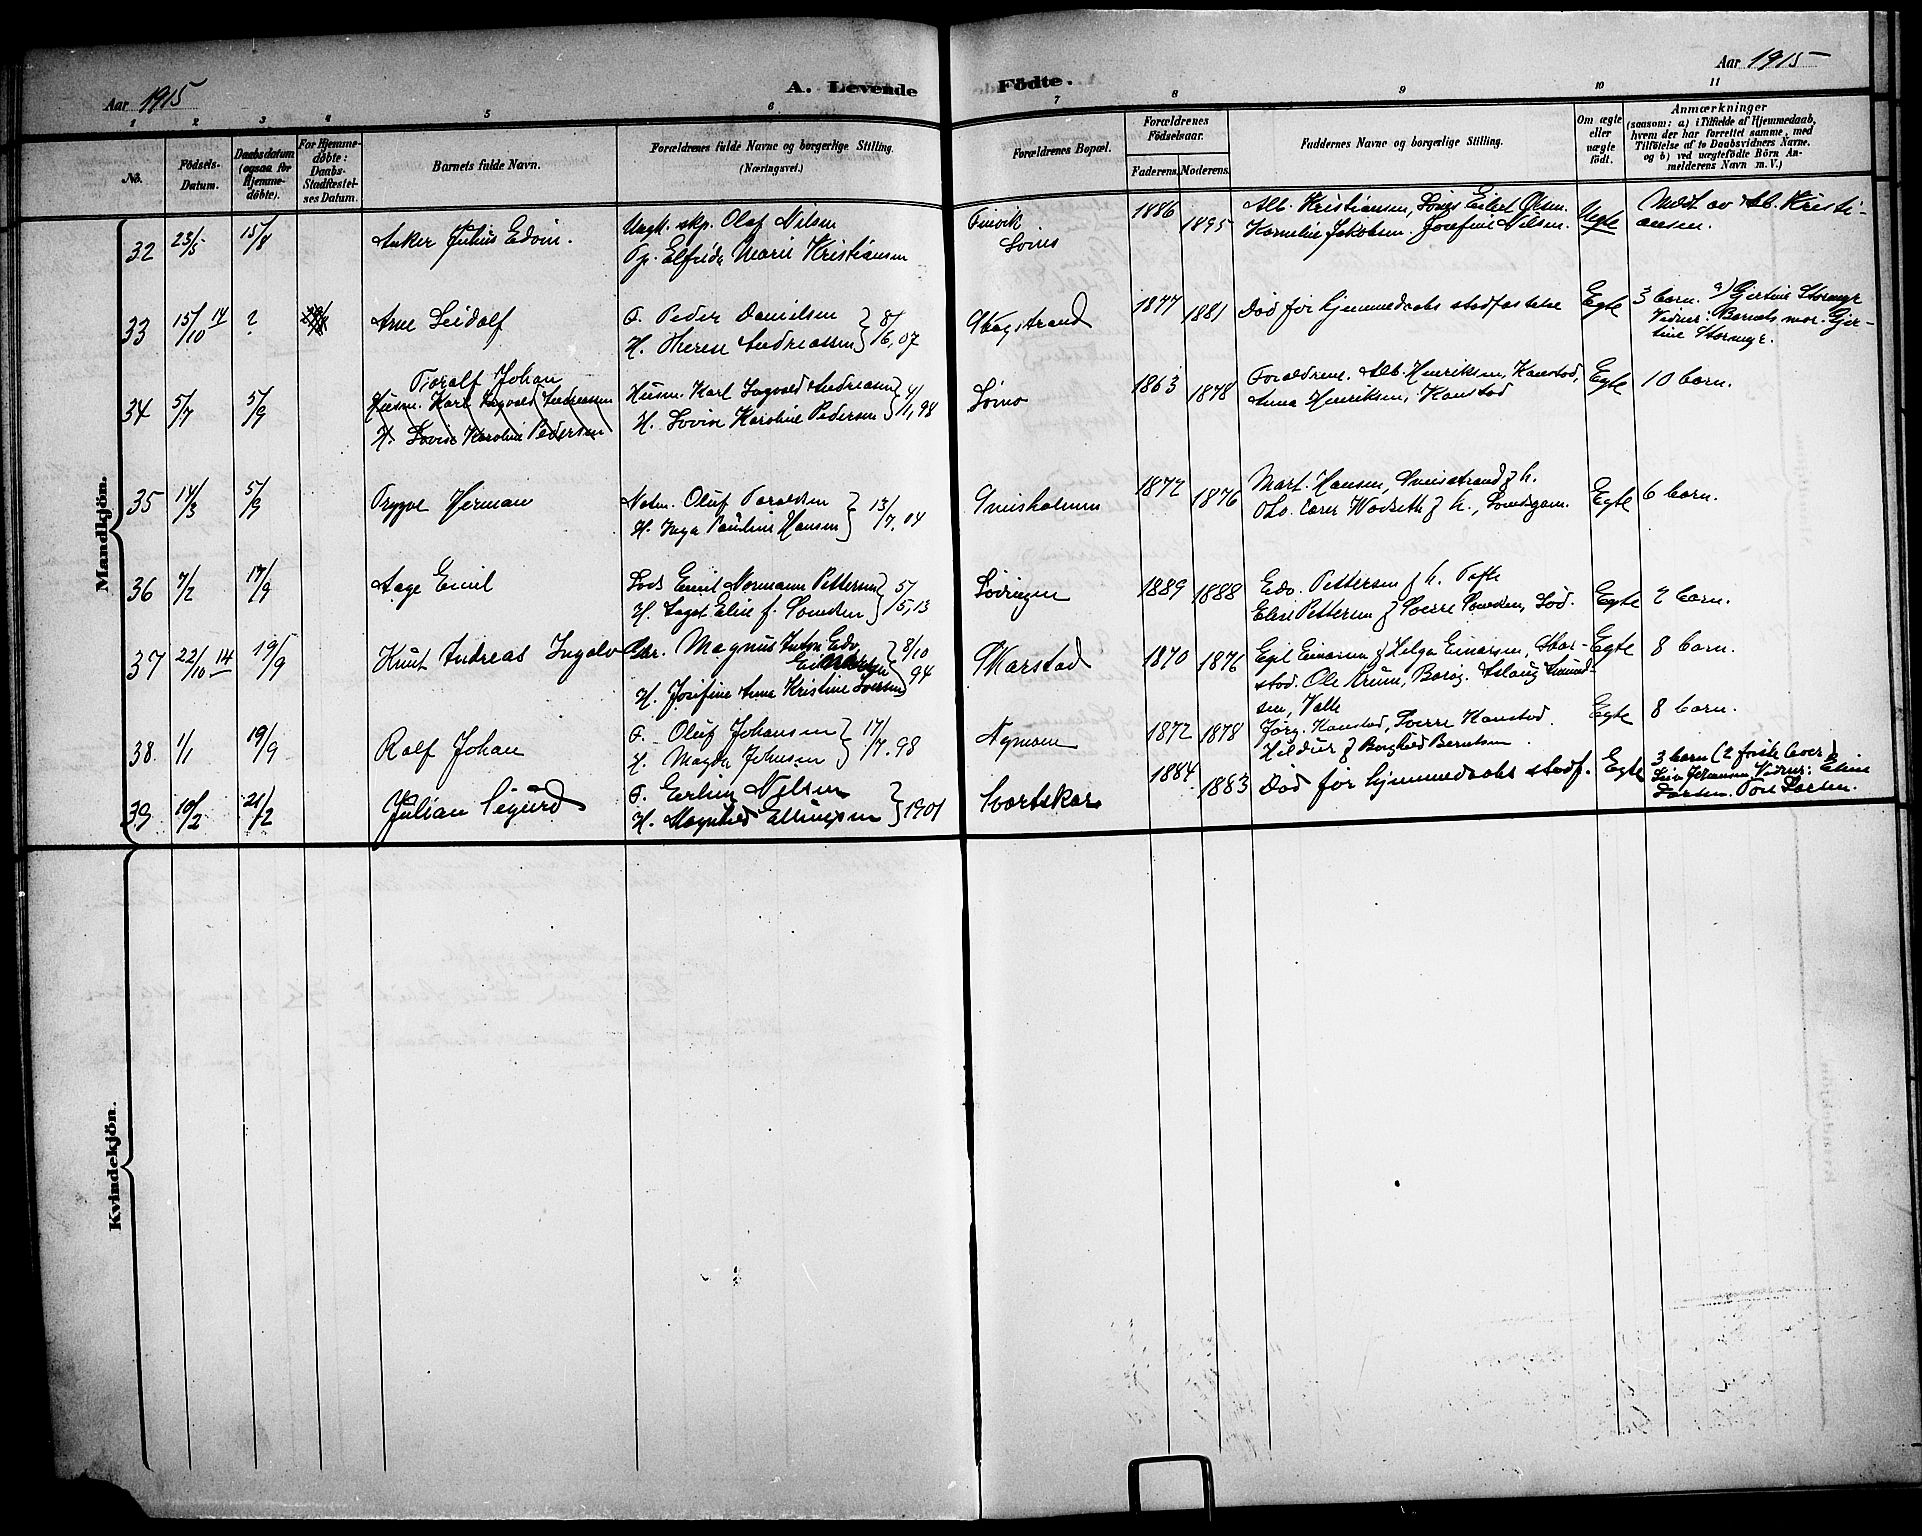 Aar 1915
A. Levende Födte.
Aar 1915
1 2 3 4 5 6 7 8 9 10 11
No.
Födsels-
Datum.
Daabsdatum
(ogsaa for
Hjemme-
döbte).
For Hjemme-
döbte:
Daabs-
Stadfæstel-
ses Datum.
Barnets fulde Navn.
Forældrenes fulde Navne og borgerlige Stilling.
(Næringsvei.)
Forældrenes Bopæl.
Forældrenes
Födselsaar.
Faderens. Moderens.
Faddernes Navne og borgerlige Stilling.
Om ægte
eller
uægte
födt.
Anmærkninger
(saasom: a) i Tilfælde af Hjemmedaab,
hvem der har forrettet samme, med
Tilföielse af to Daabsvidners Navne.
og b) ved uægtefödte Börn An-
melderens Navn m. V.)
Mandkjön.
32 23/5 15/8 Anker Julius Edvin.
Ungk. skp. Olaf Nilsen
Pp. Elfrida Marie Kristiansen
Finvik
1886 1895
Alb. Kristiansen, Eilert Olsen.
Kornelius Jakobsen. Josefine Nilsen.
Uegte
Medt av Alb. Kristi-
ansen.
33 15/10 14 ? Arne Leidolf
F. Peder Danielsen
H. Therese Andreassen } 8/6, 07
Skogstrand
1877 1881
Død før hjemmedaabs stadfæstelse
Egte
3 barn. a) Gjertine Stormyr
Vidner: Barnets mor. Gjer-
tine Stormyr.
34 5/7 5/9 Toralf Johan
Husm. Karl Ingvald Andreassen
H. Lovise Karoline Pedersen
Husm. Karl Ingvald Andreasen
H. Lovise Karoline Pedersen } 4/1, 98
1863 1878
Forældrene. Alb. Henriksen, Kanstad,
Anna Henriksen, Kanstad
Egte
10 barn.
35 14/3 5/9 Trygve Herman
Oluf
H. Inga Pauline Hansen } 13/7, 04
1872 1876
Mart. Hansen,
Egte
6 barn.
36 7/2 17/9 Aage Emil
Lods Emil Normann Pettersen
H. Elise f. } 5/5, 13
Lødingen
1889 1888
Edv. Pettersen
Elise Pettersen
Egte
2 barn.
37 22/10 14 19/9 Knut Andreas Ingolv
Gbr. Magnus Anton Edv.
Einarsen } 8/10 94
H. Josefine Anna Kristine Iversen
Skarstad
1870 1876
Egil Einarsen & Helga Einarsen, Skar-
stad. Ole
sen, Valle
Egte
8 barn.
38. 1/1 19/9 Ralf Johan
F. Oluf Johansen
H. Magda Johnsen } 17/7. 98
1872 1878
Jørg. Kanstad, Sverre Kanstad.
Hildur & Borghild Berntsen.
Egte
8 barn.
39 10/2 21/2 Julian Sigurd
F. Erling Nilsen
H. Magnhild Ellingsen } 1901
Svartskar
1884 1883
Død før hjemmedaabs stadf.
Egte
3 barn (2 første lever)
Vidner: Eline
Larsen. Tore Larsen.
Kvindekjön.